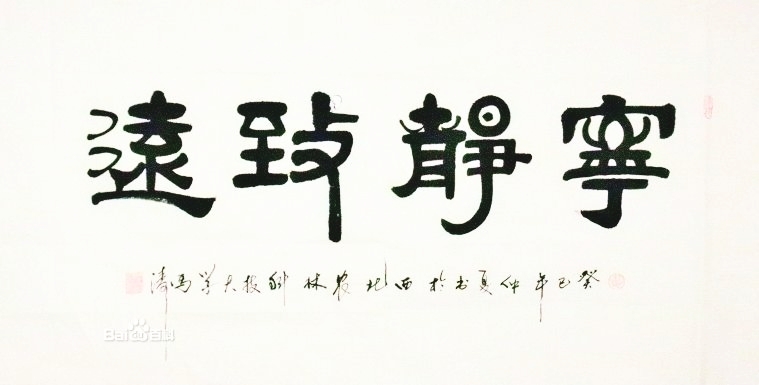 寧靜致遠
癸巳年仲夏书於西北农林科技大学馬涛
Bai百科